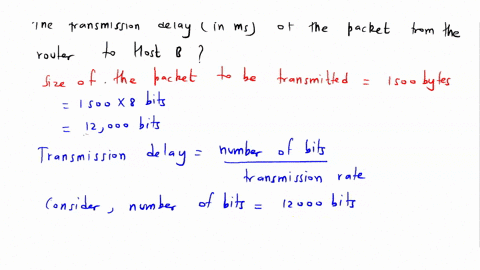 The transmission delay (in ms) of the packet from the
router to Host B ?
Size of. the packet to be transmitted = 1500 bytes
= 1500 X 8 bits
= 12,000 bits
Transmission delay = number of bits
transmission rate
Consider, number of bits = 12000 bits